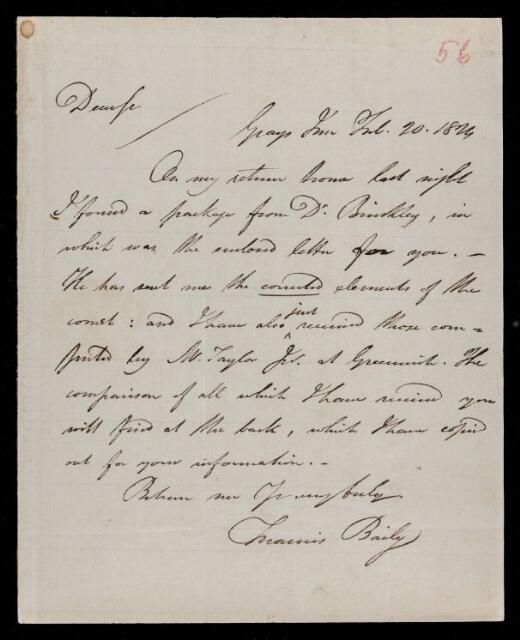 56
Dear Sir
Grays Inn Feb. 20. 1824
On my return home last night
I found a package from Dr. Brinkley, in
which was the enclosed letter for you. –
He has sent me the corrected elements of the
comet: and I have also just received those com=
puted by Mr. Taylor Jr. at Greenwich. The
comparison of all which I have received you
will find at the back, which I have copied
out for your information. –
Believe me Yrs very truly
Francis Baily